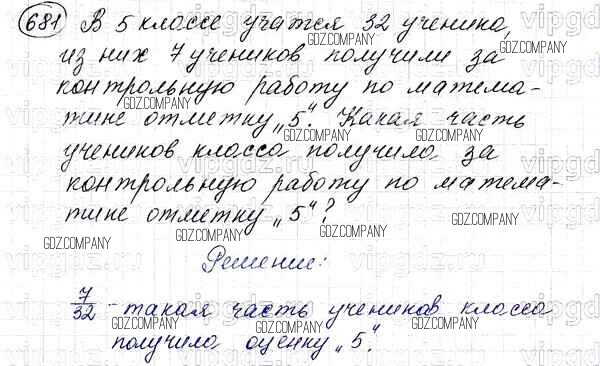 681 В 5 классе учатся 32 ученика,
из них 7 учеников получили за
контрольную работу по матема-
тике отметку „5“. Какая часть
учеников класса получила за
контрольную работу по матема-
тике отметку „5“?
Решение:
7/32 - такая часть учеников класса
получила оценку „5“.
GDZ.COMPANY
vipgdz.ru